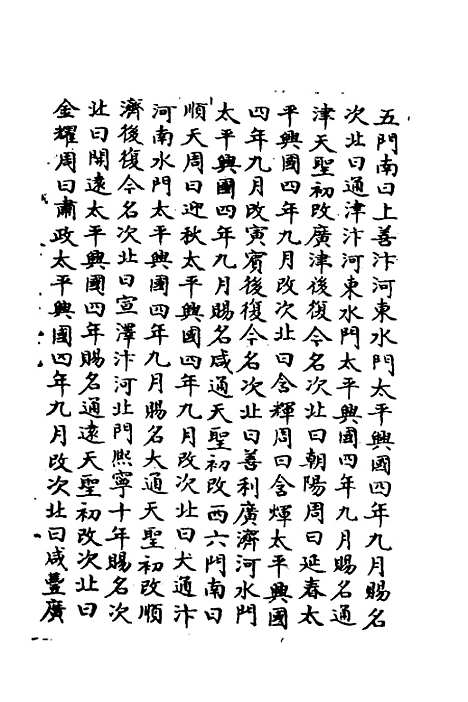 五門南曰上善汴河東水門太平興國四年九月賜名
次北曰通津汴河東水門太平興國四年九月賜名通
津天聖初改廣津後復今名次北曰朝陽周曰延春太
平興國四年九月改次北曰含輝周曰含煇太平興國
四年九月改寅賓後復今名次北曰善利廣濟河水門
太平興國四年九月賜名咸通天聖初改西六門南曰
順天周曰迎秋太平興國四年九月改次北曰大通汴
河南水門太平興國四年九月賜名大通天聖初改順
濟後復今名次北曰宣澤汴河北門熈寧十年賜名次
北曰開遠太平興國四年賜名通遠天聖初改次北曰
金耀周曰肅政太平興國四年九月改次北曰咸豐廣